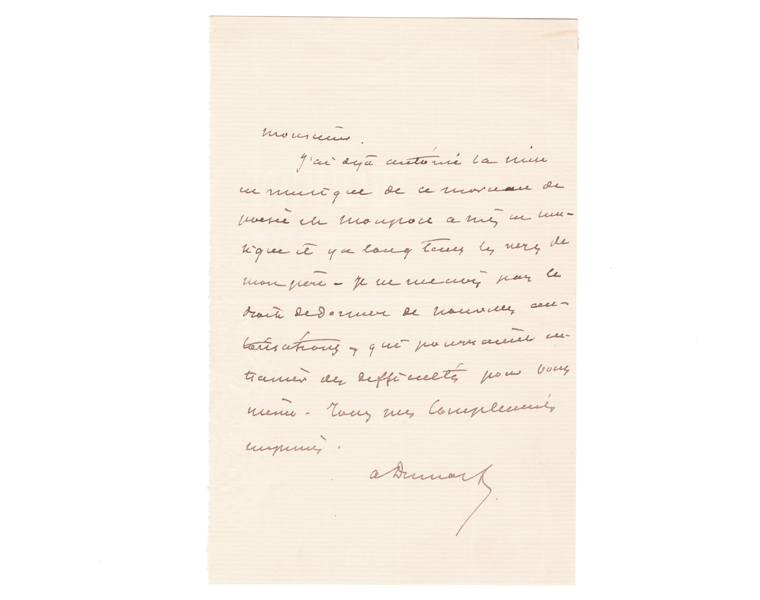 Monsieur.
J'ai déjà autorisé la mise
en musique de ce morceau de
poésie et Monpou a mis en mu-
sique il y a long temps les vers de
mon père – je ne me crois pas le
droit de donner de nouvelles au-
torisations, qui pourraient en-
trainer des difficultés pour vous
même – Tous mes compliments
empressés.